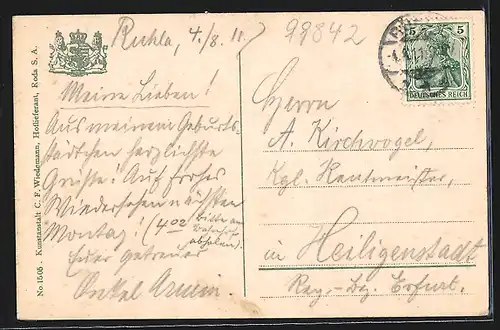 Ruhla, 4./8. 11.
99842
Meine Lieben!
Aus meinem Geburts-
städtchen herzlichste
Grüße! Auf frohes
Wiedersehen nächsten
Montag! (4⁰⁰ Bitte am
Bahnhof
abholen).
Euer getreuer
Onkel Armin.
Herrn
A. Kirchvogel,
Kgl. Rentmeister,
in Heiligenstadt
Reg.-Bez. Erfurt.
5 5
DEUTSCHES REICH
No 1505. Kunstanstalt C. F. Wiedemann, Hoflieferant, Roda S. A.